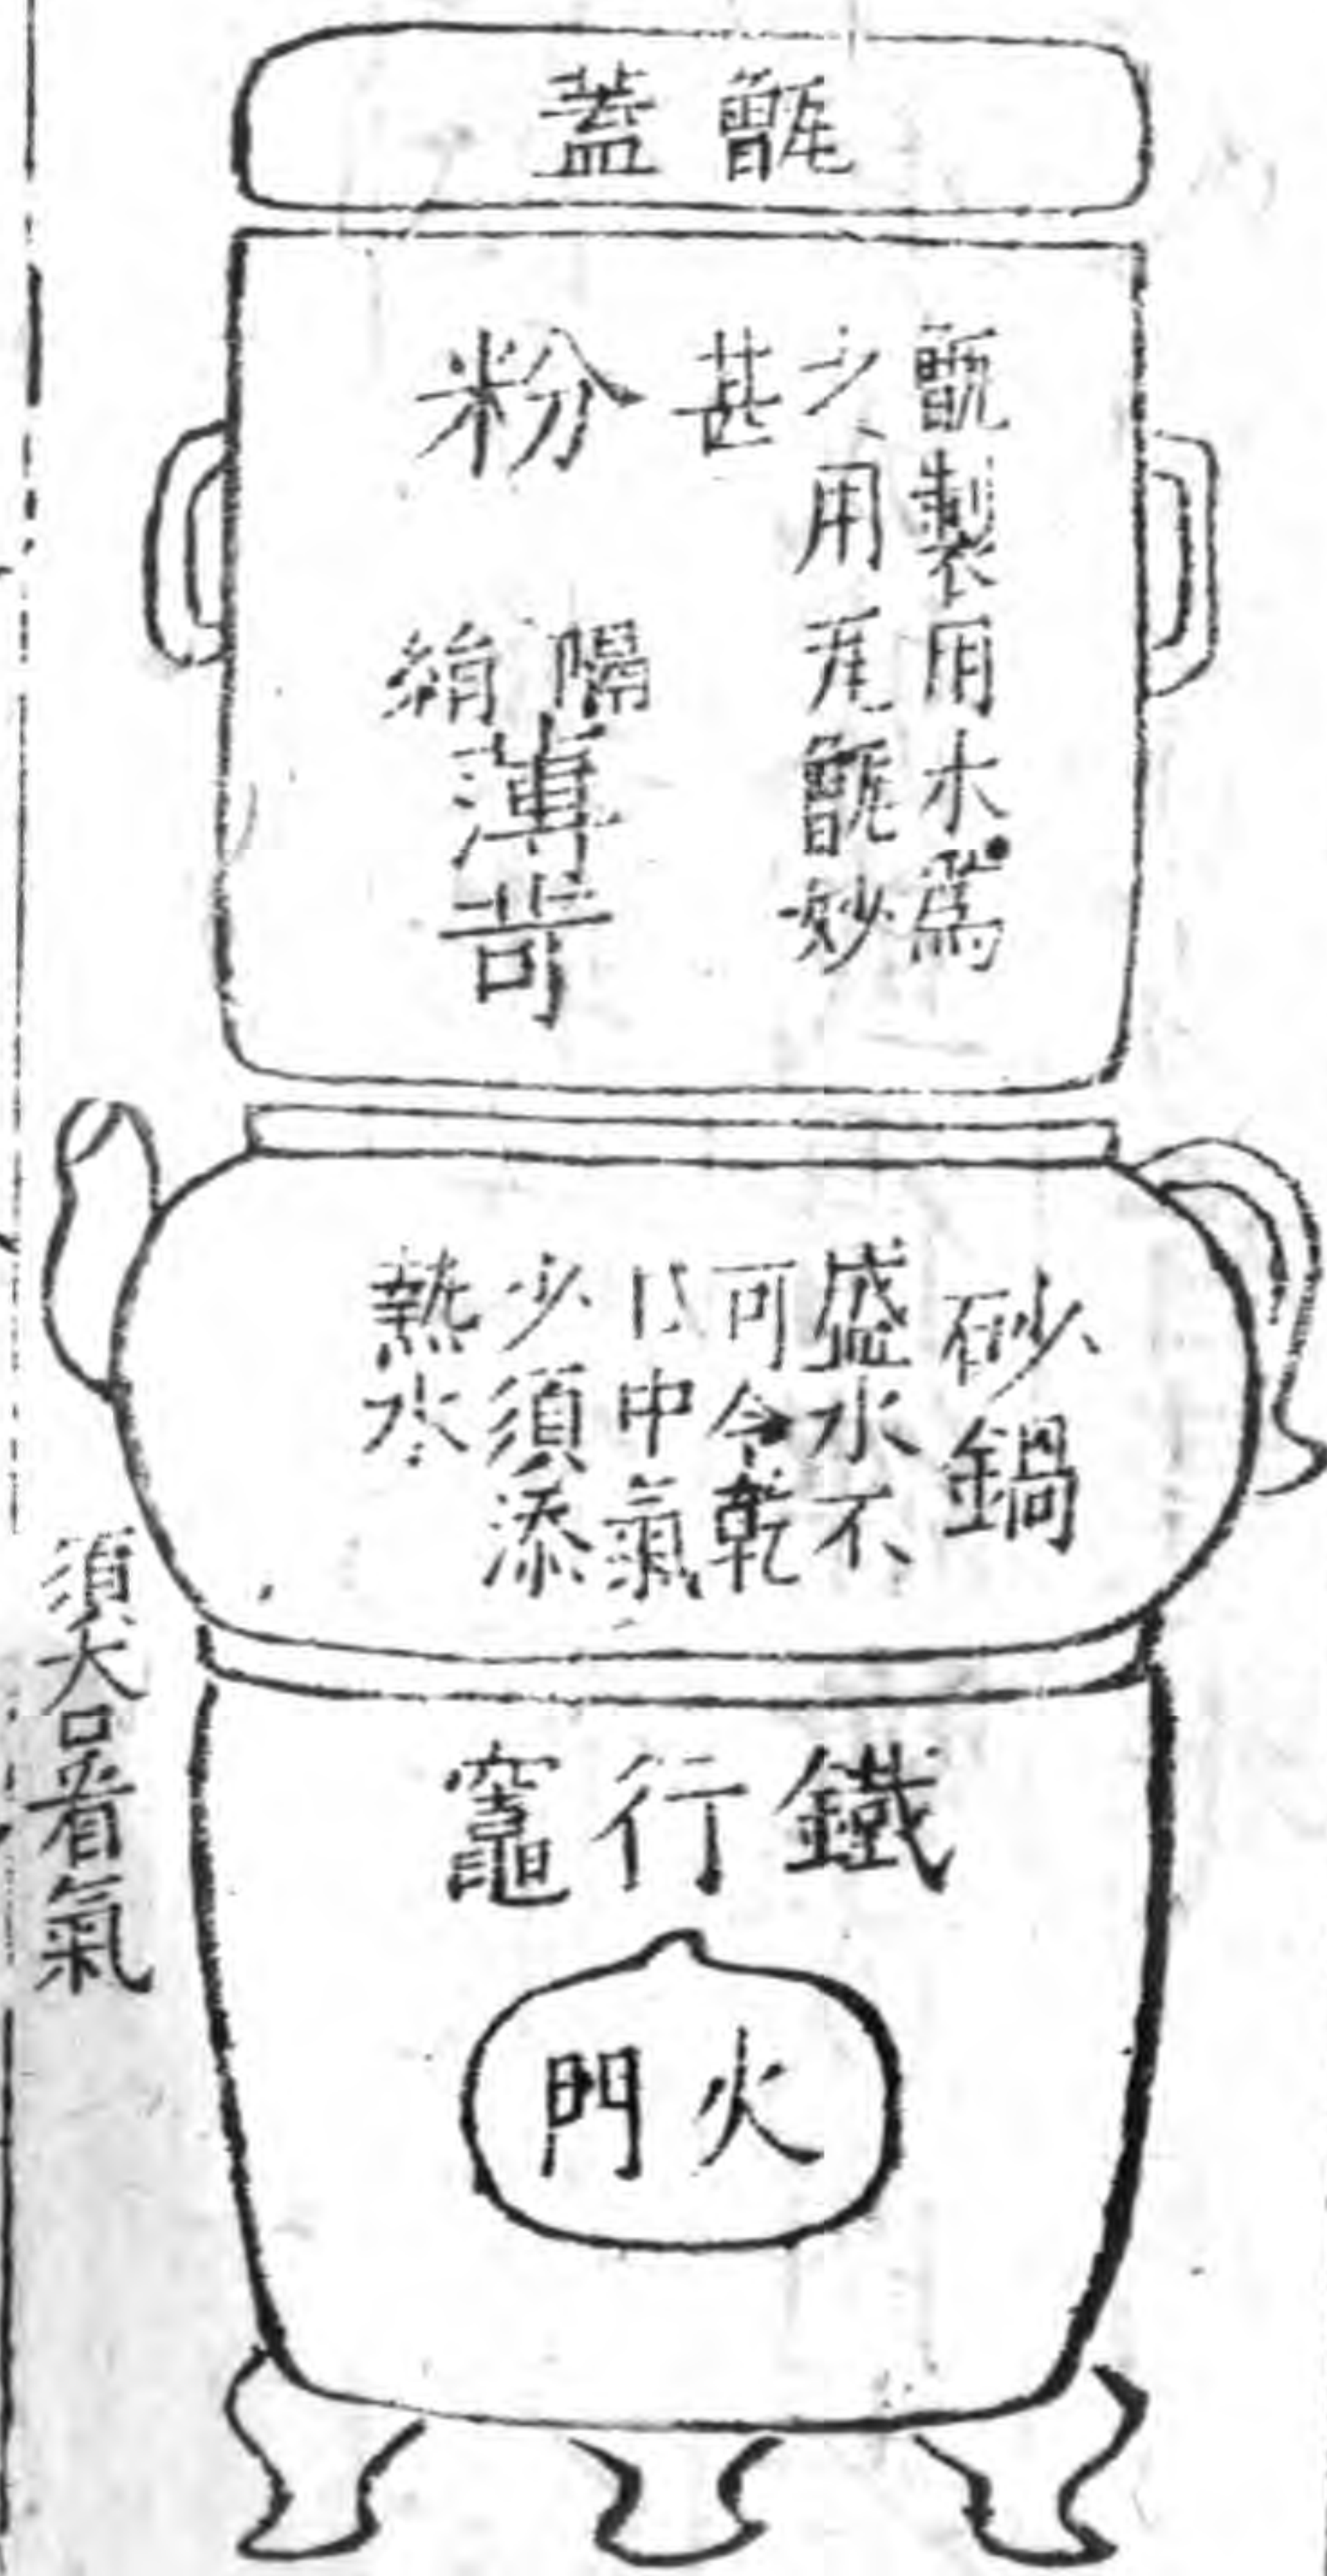 甑蓋
甑製用木爲
少用瓦甑妙
甚
粉
隔絹
薄苛
砂鍋
盛水不
可令乾
以中氣
少須添
熱水
鐵行竈
火門
須大氣